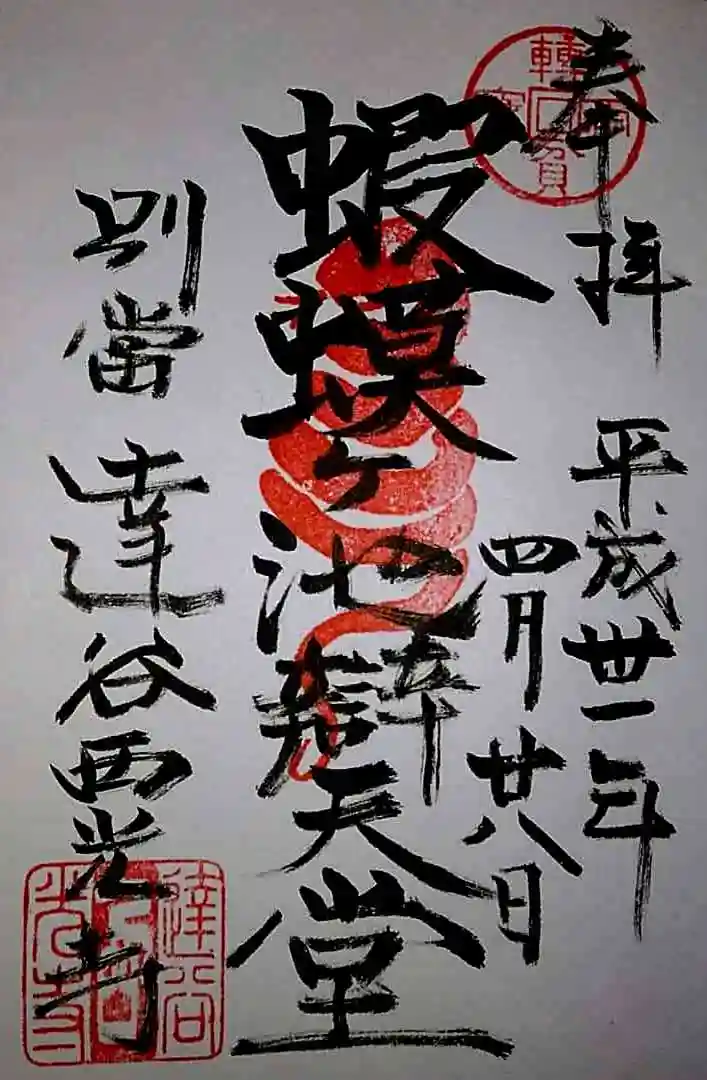 奉拝 平成卅一年
四月廿八日
蝦蟆ヶ池辯天堂
別當 達谷西光寺
達谷
光寺